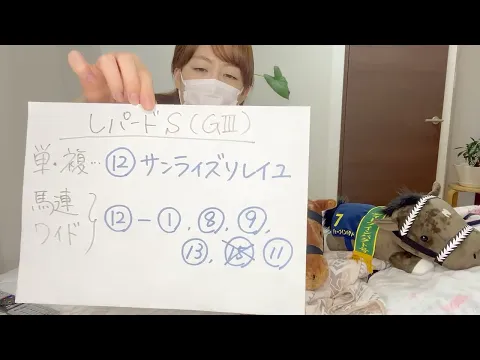 レパードS(GⅢ)
単・複…⑫サンライズソレイユ
馬連
ワイド
⑫－①,⑧,⑨,
⑬,⑮,⑪
7